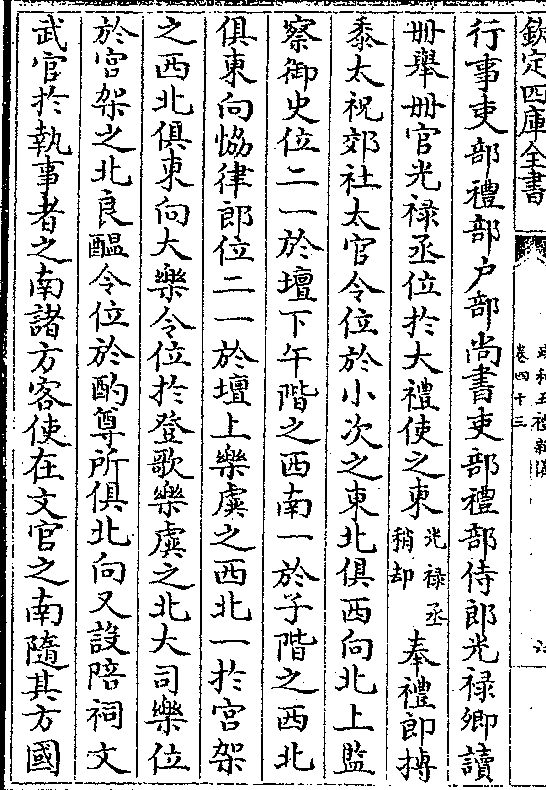 欽定四庫全書
政和五禮新儀
卷四十三
行事吏部禮部户部尚書吏部禮部侍郎光禄卿讀
冊舉冊官光禄丞位於大禮使之東光禄丞稍却奉禮郎搏
黍太祝郊社太官令位於小次之東北俱西向北上監
察御史位二一於壇下午階之西南一於子階之西北
俱東向恊律郎位二一於壇上樂虡之西北一於宫架
之西北俱東向大樂令位於登歌樂虡之北大司樂位
於宫架之北良醖令位於酌尊所俱北向又設陪祠文
武官於執事者之南諸方客使在文官之南隨其方國